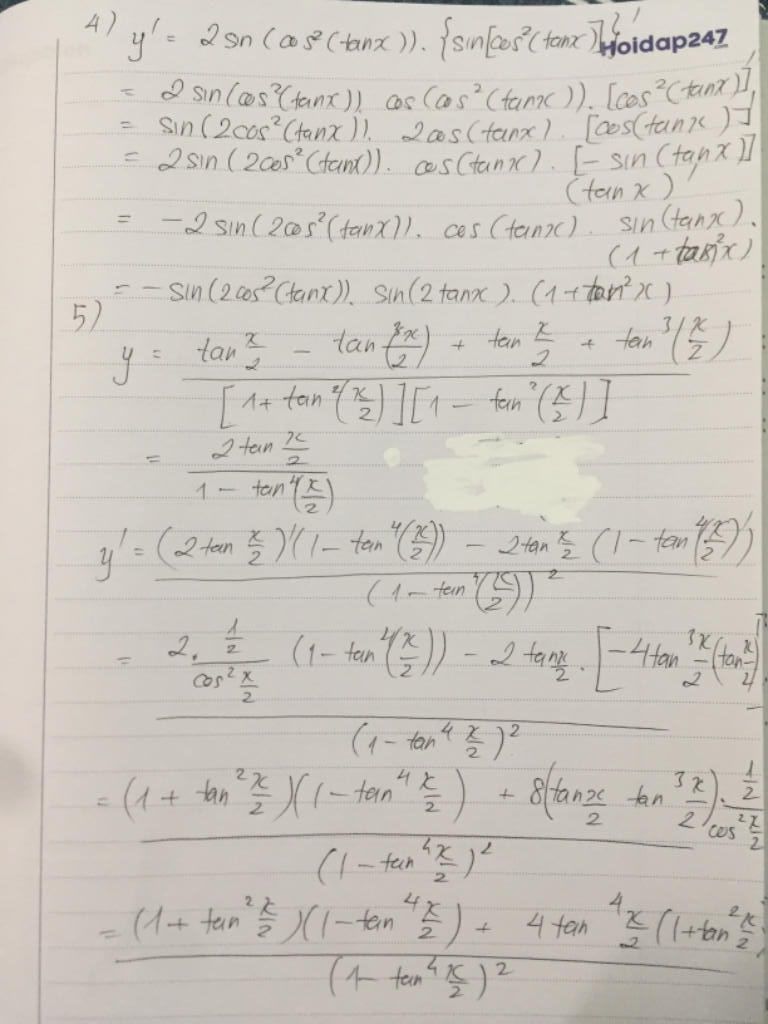 4) y' = 2sin(cos²(tanx)). {sin[cos²(tanx)]}'
Hoidap247
= 2sin(cos²(tanx)). cos(cos²(tanx)). [cos²(tanx)]'
= sin(2cos²(tanx)). 2cos(tanx). [cos(tanx)]'
= 2sin(2cos²(tanx)). cos(tanx). [-sin(tanx)]
(tanx)'
= -2sin(2cos²(tanx)). cos(tanx). sin(tanx).
(1+tan²x)
= -sin(2cos²(tanx)). sin(2tanx). (1+tan²x)
5)
y = (tan x/2 - tan³(x/2) + tan x/2 + tan³(x/2)) / ([1+tan²(x/2)][1-tan²(x/2)])
= (2tan x/2) / (1-tan⁴(x/2))
y' = ((2tan x/2)'(1-tan⁴(x/2)) - 2tan x/2 (1-tan⁴(x/2))') / (1-tan⁴(x/2))²
= (2. (1/2)/(cos² x/2) (1-tan⁴(x/2)) - 2tan x/2 . [-4tan³ x/2 (tan x/4)]) / (1-tan⁴ x/2)²
= ((1+tan² x/2)(1-tan⁴ x/2) + 8(tan x/2 tan³ x/2). (1/2)/(cos² x/2)) / (1-tan⁴ x/2)²
= ((1+tan² x/2)(1-tan⁴ x/2) + 4tan⁴ x/2 (1+tan² x/2) / (1-tan⁴ x/2)²